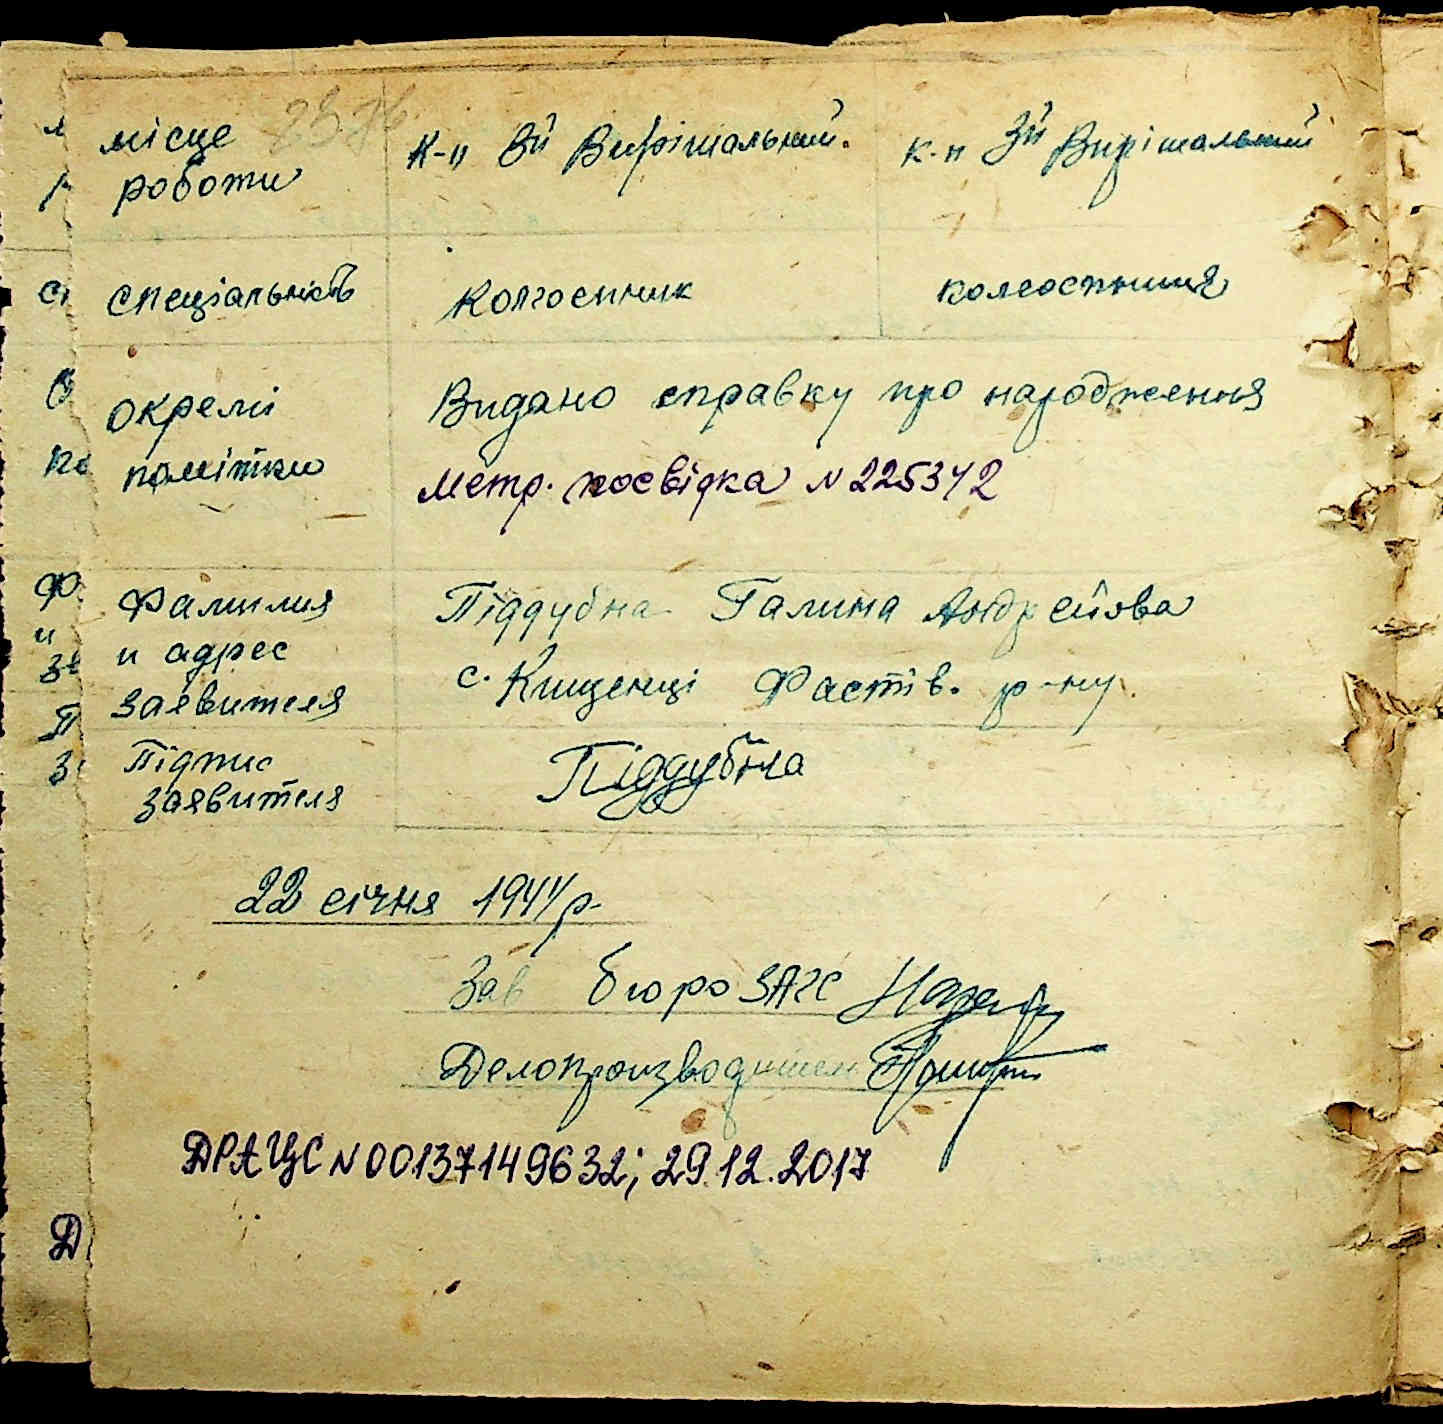 місце
роботи
к-п 3й Вирішальний.
к-п 3й Вирішальний
спеціальність
колгоспник
колгоспниця
окремі
помітки
Видано справку про народження
метр. посвідка N 225342
Фамилия
и адрес
заявителя
Піддубна Галина Андреївна
с. Кищенці Фастів. р-ну.
Підпис
заявителя
Піддубна
22 січня 1944 р.
Зав бюро ЗАГС
Делопроизводител
ДРАЦС N 00137149632; 29.12.2017